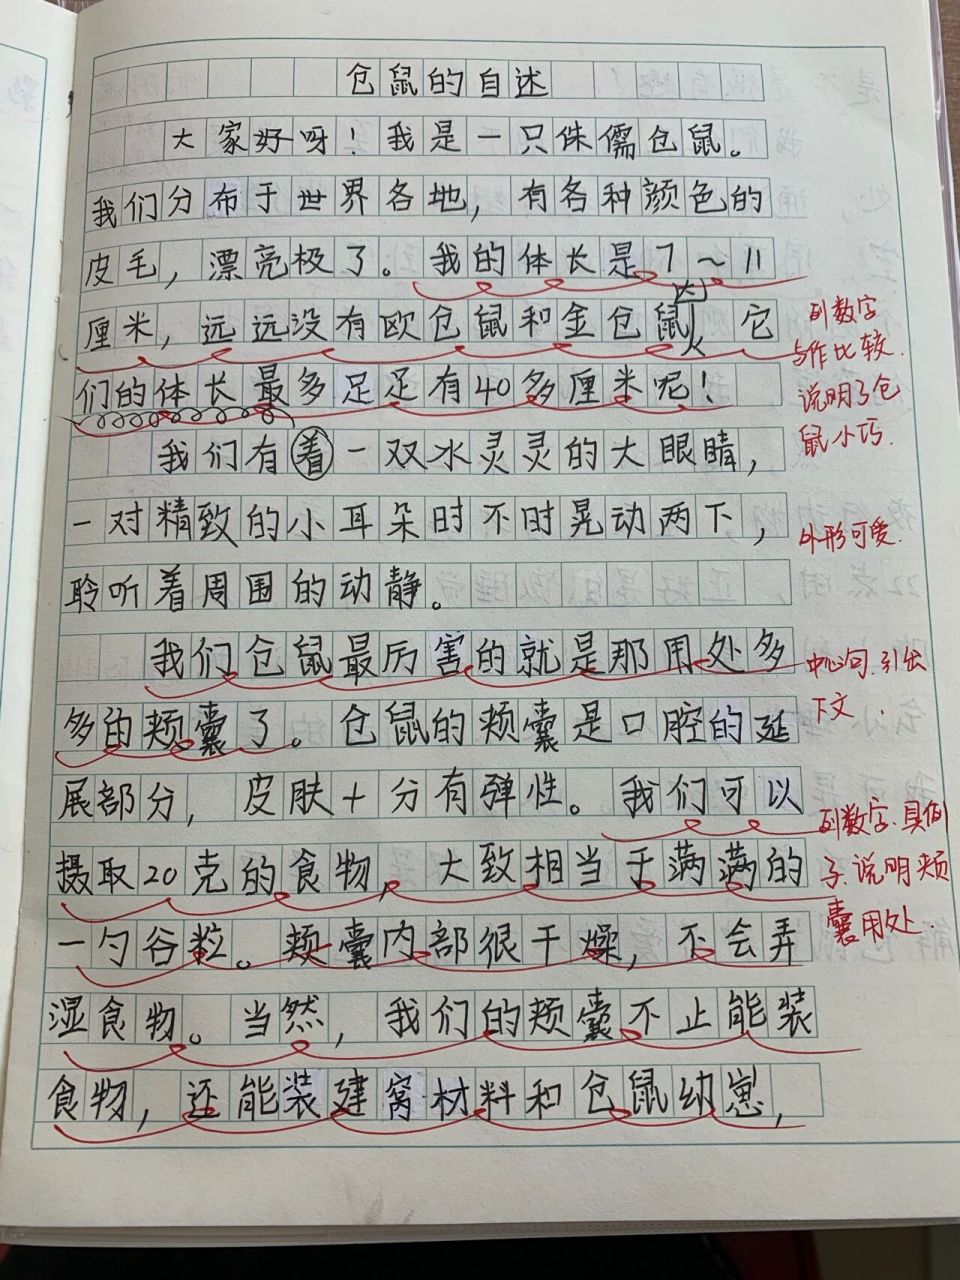 仓鼠的自述
大家好呀！我是一只侏儒仓鼠。
我们分布于世界各地，有各种颜色的
皮毛，漂亮极了。我的体长是7～11
厘米，远远没有欧仓鼠和金仓鼠大，它
们的体长最多足足有40多厘米呢！
列数字
与作比较.
说明了仓
鼠小巧.
我们有着一双水灵灵的大眼睛，
一对精致的小耳朵时不时晃动两下，
聆听着周围的动静。
外形可爱.
我们仓鼠最厉害的就是那用处多
多的颊囊了。仓鼠的颊囊是口腔的延
展部分，皮肤十分有弹性。我们可以
摄取20克的食物，大致相当于满满的
一勺谷粒。颊囊内部很干燥，不会弄
湿食物。当然，我们的颊囊不止能装
食物，还能装建窝材料和仓鼠幼崽，
中心句.引出
下文.
列数字.具例
子.说明颊
囊用处.